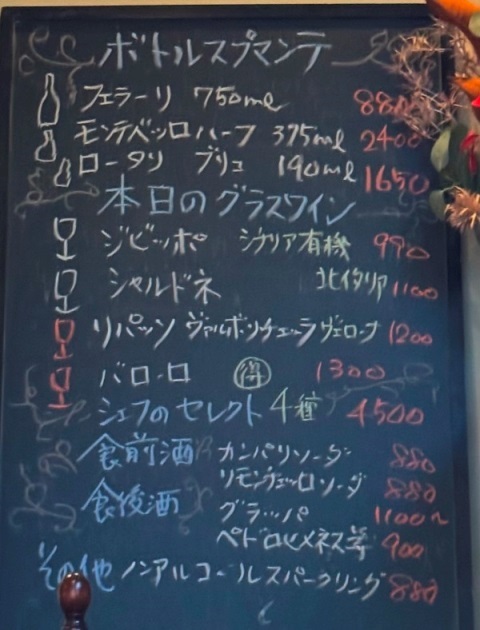 ボトルスプマンテ
フェラーリ 750ml 8800
モンテベッロハーフ 375ml 2400
ロータリ ブリュ 190ml 1650
本日のグラスワイン
ジビッボ シチリア有機 990
シャルドネ 北イタリア 1100
リパッソ ヴァルポリチェッラ ヴェローナ 1200
バローロ 得 1300
シェフのセレクト 4種 4500
食前酒 カンパリソーダ 880
リモンチェッロソーダ 880
食後酒 グラッパ 1100〜
ペドロヒメネス等 900
その他 ノンアルコールスパークリング 880